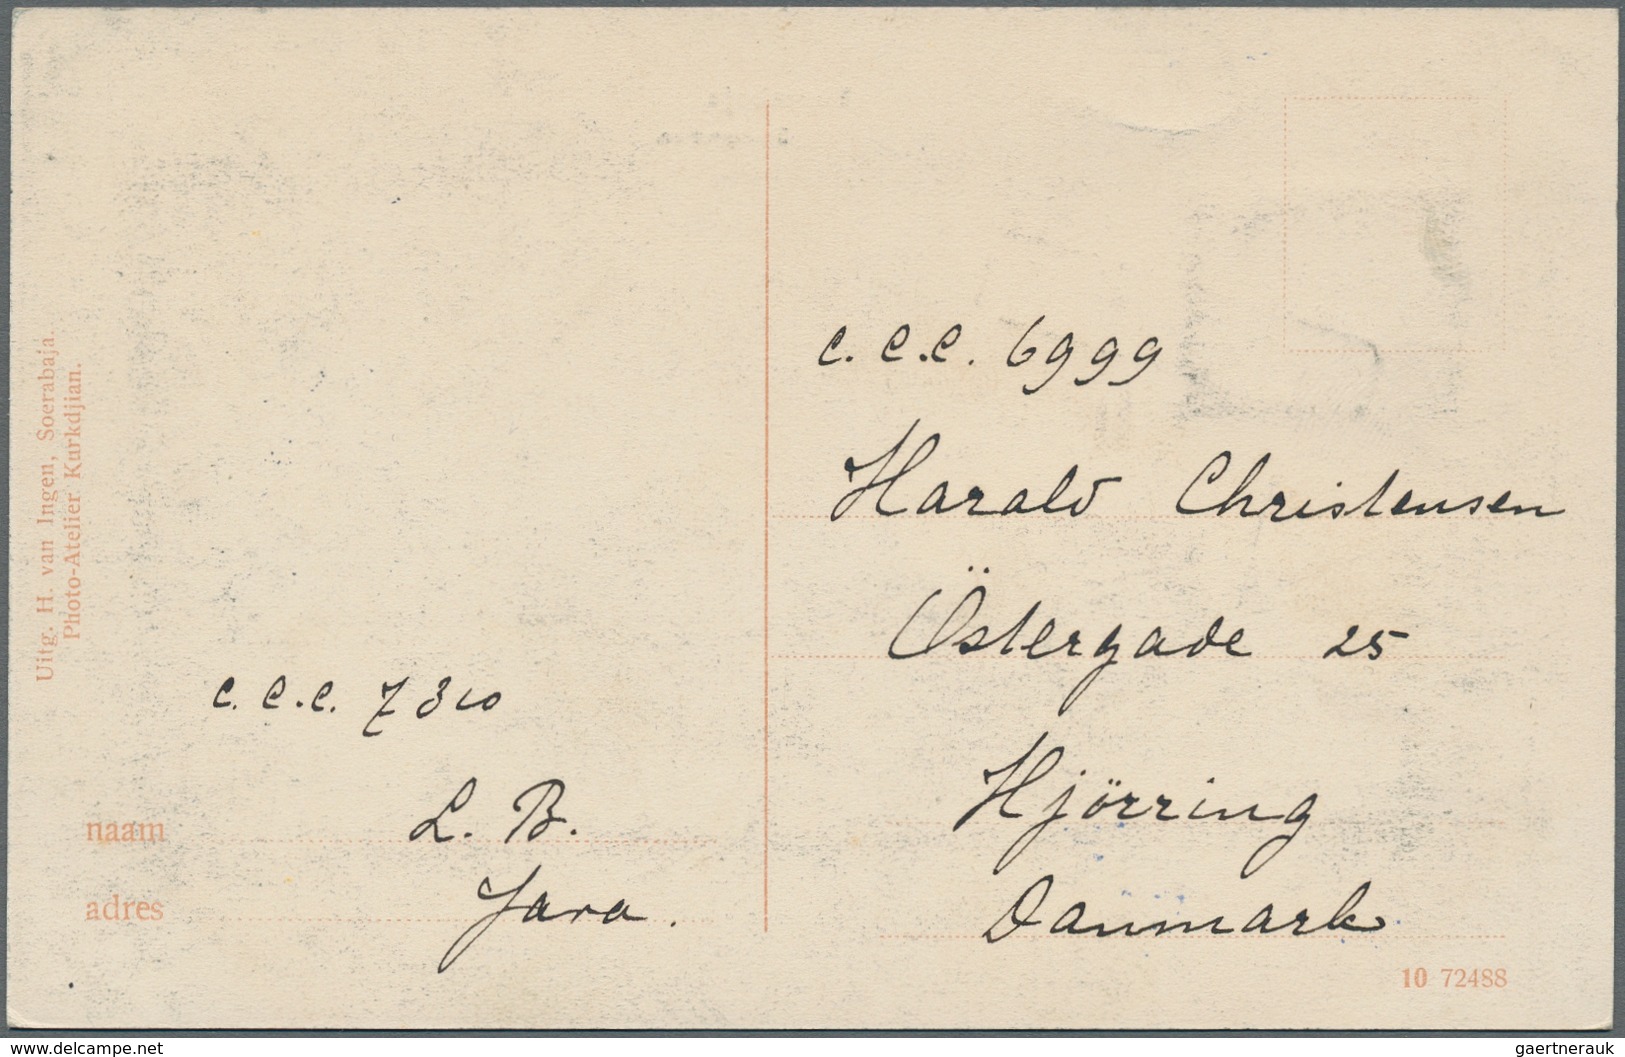 Uitg. H. van Ingen, Soerabaja.
Photo-Atelier Kurkdjian.
c.c.c. 7310
naam L. B.
adres Java.
c.c.c. 6999
Harald Christensen
Östergade 25
Hjörring
Danmark
10 72488
www.delcampe.net
gaertnerauk